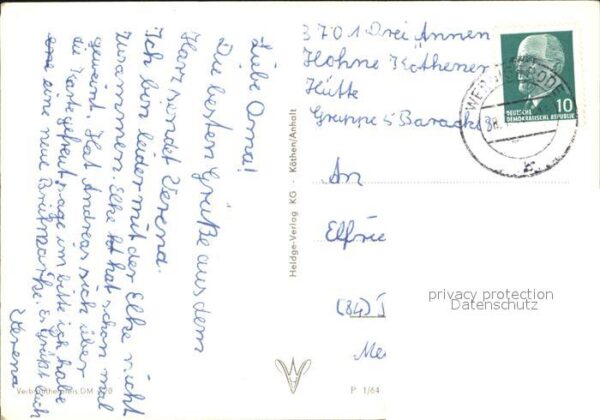 Liebe Oma!
Die besten Grüße aus dem
Harz sendet Verena.
Ich bin leider mit der Elke nicht
zusammen. Elke hat schon mal
geweint. Hat Andreas sich über
die Karte gefreut, sage im bitte ich habe
eine neue Briefmarke. Es Grüßt Euch
Verena
Verbraucherpreis DM
Heldge-Verlag KG - Köthen/Anhalt
3701 Drei Annen
Hohne Köthener
Hütte
Gruppe 5 Baracke
DEUTSCHE
DEMOKRATISCHE REPUBLIK
10
WERNIGERODE
An
Elfrie
Me
P 1/64
privacy protection
Datenschutz